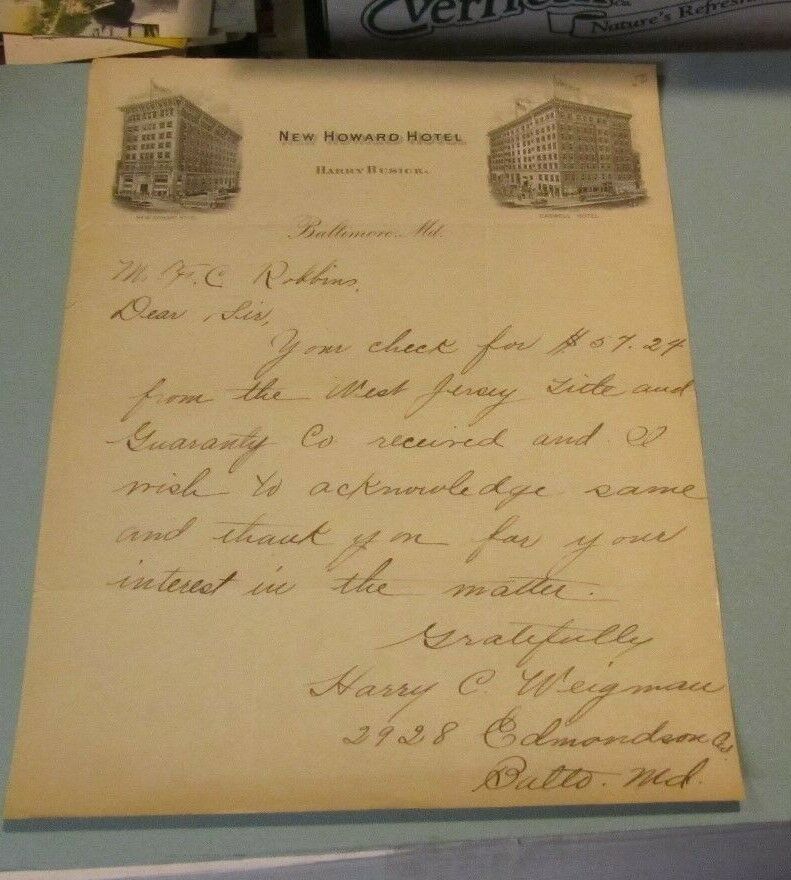 Nature's Refreshm
NEW HOWARD HOTEL
HARRY BUSICK.
Baltimore, Md.
NEW HOWARD HOTEL
CASWELL HOTEL
M. H. C Robbins,
Dear Sir,
Your check for $57.24
from the West Jersey Title and
Guaranty Co received and I
wish to acknowledge same
and thank you for your
interest in the matter.
Gratefully
Harry C. Weigman
2928 Edmondson Av
Balto. Md.